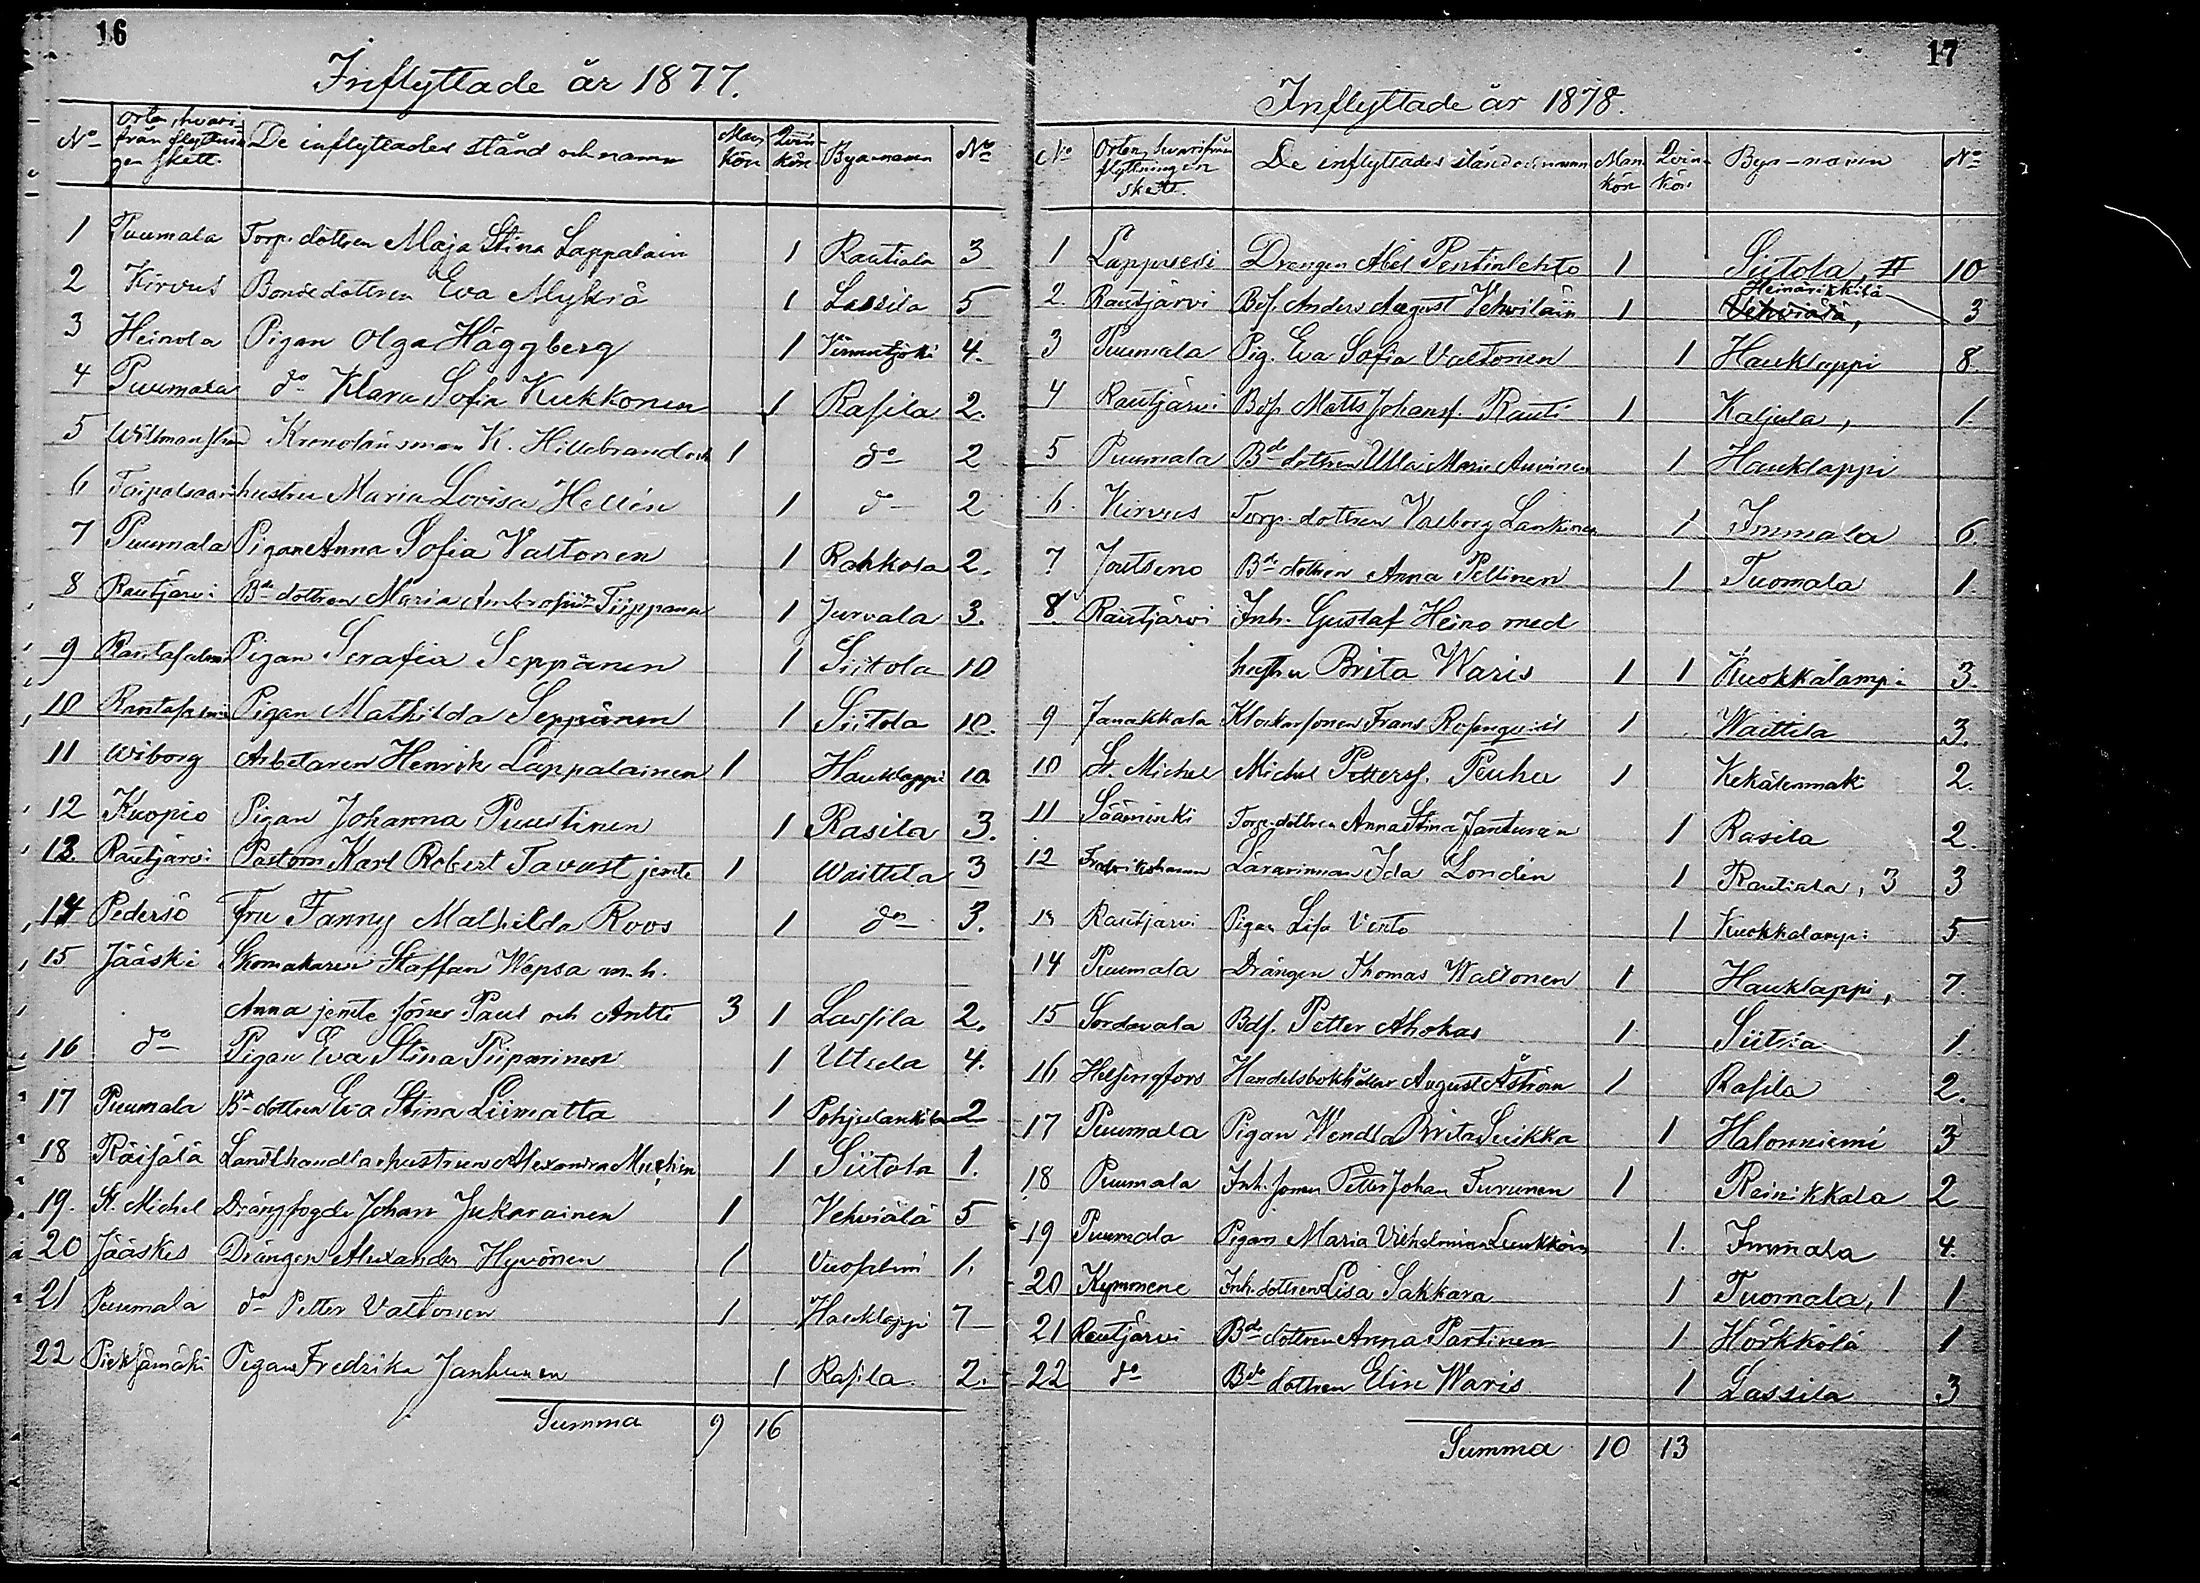 16
Inflyttade år 1877.
No Orten, hvari- från flyttnin gen skett. De inflyttades stånd och namn Man kön Qvin- kön Bya-namn No
1 Puumala Torp. dottren Maja Stina Lappalain 1 Rautiala 3
2 Kirvus Bondedottren Eva Mykrä 1 Lassila 5
3 Heinola Pigan Olga Häggberg 1 4.
4 Puumala do Klara Sofia Kukkonen 1 Rasila 2.
5 Willmanstrand Kronolänsman K. Hillebrand och 1 do 2
6 Taipalsaari hustru Maria Lovisa Hellén 1 do 2
7 Puumala Pigan Anna Sofia Valtonen 1 Rahkola 2.
8 Rautjärvi Bde dottren Maria Tiippana 1 Jurvala 3.
9 Rantasalmi Pigan Serafia Seppänen 1 Siitola 10
10 Rantasalmi Pigan Mathilda Seppänen 1 Siitola 10.
11 Wiborg Arbetaren Henrik Lappalainen 1 Hauklappi 10
12 Kuopio Pigan Johanna Puustinen 1 Rasila 3.
13. Rautjärvi Pastorn Karl Robert Tavast jemte 1 Waittila 3
14 Pedersö Fru Fanny Mathilda Roos 1 do 3.
15 Jääski Skomakaren Staffan Wepsa m. h.
Anna jemte söner Paul och Antti 3 1 Lassila 2.
16 do Pigan Eva Stina Piiparinen 1 Utula 4.
17 Puumala Bde dottren Eva Stina Liimatta 1 Pohjalankila 2
18 Räisälä Landthandlarhustrun Alexandra Muchin 1 Siitola 1.
19. St. Michel Drängfogde Johan Jukarainen 1 Vehviälä 5
20 Jääskis Drängen Alexander Hyvönen 1 Vuosalmi 1.
21 Puumala do Petter Valtonen 1 Hauklappi 7
22 Pieksämäki Pigan Fredrika Janhunen 1 Rasila 2.
Summa 9 16
17
Inflyttade år 1878.
No Orten, hvarifrån flyttningen skett. De inflyttades stånd och namn Man kön Qvin- kön Bya-namn No
1 Lappvesi Drengen Abel Pentinlehto 1 Siitola, II 10
2. Rautjärvi Bds. Anders August Vehviläin 1 Vehviälä, Heinärikkilä 3
3 Puumala Pig. Eva Sofia Valtonen 1 Hauklappi 8.
4 Rautjärvi Bds. Matts Johanss. Rauti 1 Kaljula, 1.
5 Puumala Bde dottren Ulla Maria Auvinen 1 Hauklappi
6. Kirvus Torp. dottren Valborg Lankinen 1 Immala 6.
7 Joutseno Bde dottren Anna Peltinen 1 Tuomala 1.
8. Rautjärvi Inh. Gustaf Heino med
hustru Brita Waris 1 1 Kuokkalampi 3.
9 Janakkala Klockarsonen Frans Rosenqvist 1 Waittila 3.
10 St. Michel Michel Petterss. Peuhu 1 Kekäleenmäki 2.
11 Sääminki Torp. dottren Anna Stina Jantunen 1 Rasila 2.
12 Fredrikshamn Lärarinnan Ida Londén 1 Rautiala, 3 3
13 Rautjärvi Pigan Lisa Virto 1 Kuokkalampi 5
14 Puumala Drängen Thomas Waltonen 1 Hauklappi, 7.
15 Sordavala Bds. Petter Ahokas 1 Siitola 1.
16 Helsingfors Handelsbokhållar August Åström 1 Rasila 2.
17 Puumala Pigan Wendla Brita Suikka 1 Halonniemi 3
18 Puumala Inh. sonen Petter Johan Turunen 1 Räinikkala 2
19 Puumala Pigan Maria Vilhelmina Luukkoin 1. Immala 4.
20 Kymmene Inh. dottren Lisa Sakkara 1 Tuomala, 1 1
21 Rautjärvi Bde dottren Anna Partinen 1 Hörkkölä 1
22 do Bde dottren Elin Waris 1 Lassila 3
Summa 10 13